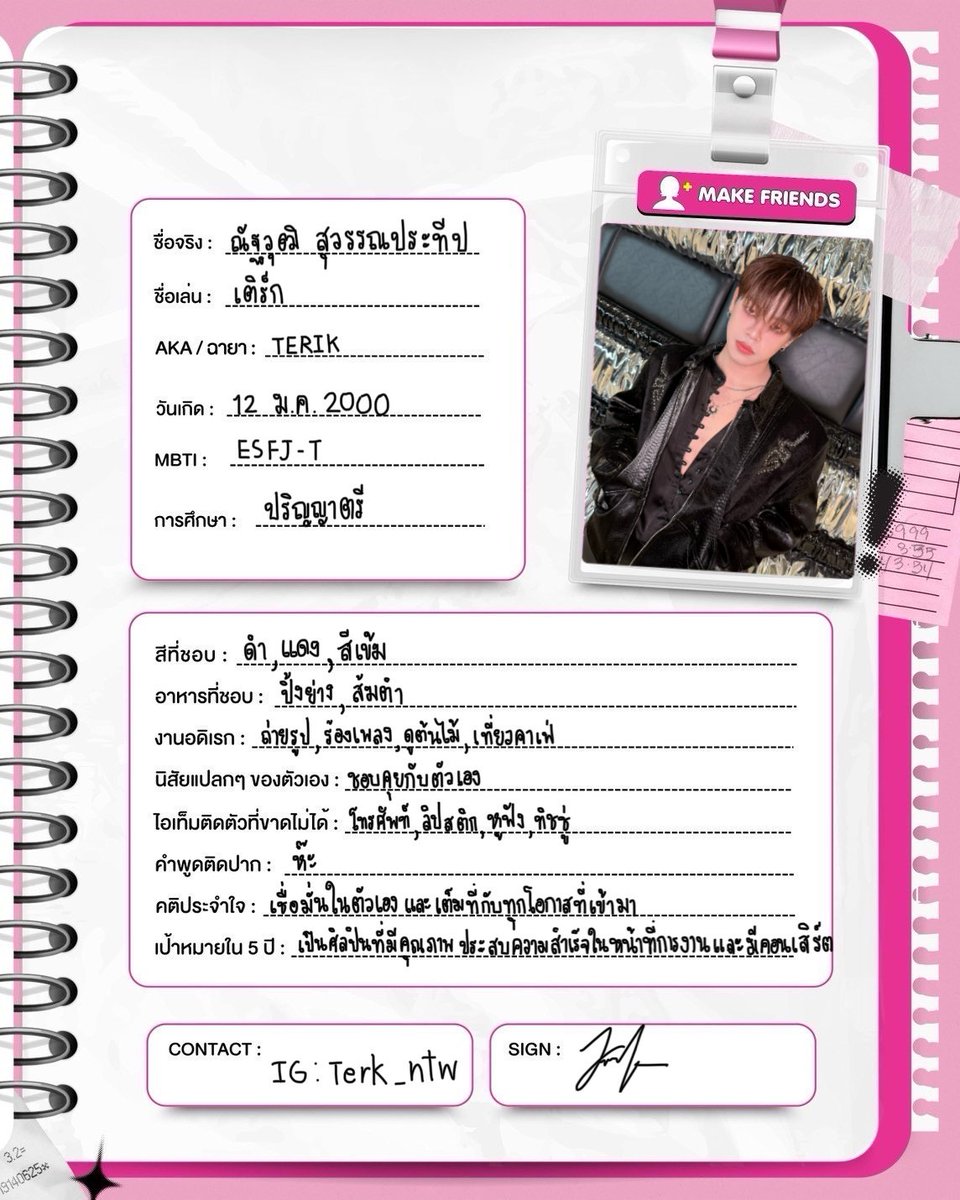 MAKE FRIENDS
ชื่อจริง : ณัฐวุฒิ สุวรรณประทีป
ชื่อเล่น : เติร์ก
AKA / ฉายา : TERIK
วันเกิด : 12 ม.ค. 2000
MBTI : ESFJ-T
การศึกษา : ปริญญาตรี
สีที่ชอบ : ดำ, แดง, สีเข้ม
อาหารที่ชอบ : ปิ้งย่าง, ส้มตำ
งานอดิเรก : ถ่ายรูป, ร้องเพลง, ดูต้นไม้, เที่ยวคาเฟ่
นิสัยแปลกๆ ของตัวเอง : ชอบคุยกับตัวเอง
ไอเท็มติดตัวที่ขาดไม่ได้ : โทรศัพท์, ลิปสติก, หูฟัง, ทิชชู่
คำพูดติดปาก : ห๊ะ
คติประจำใจ : เชื่อมั่นในตัวเอง และเต็มที่กับทุกโอกาสที่เข้ามา
เป้าหมายใน 5 ปี : เป็นศิลปินที่มีคุณภาพ ประสบความสำเร็จในหน้าที่การงาน และมีคอนเสิร์ต
CONTACT : IG : Terk_ntw
SIGN :
3.2=